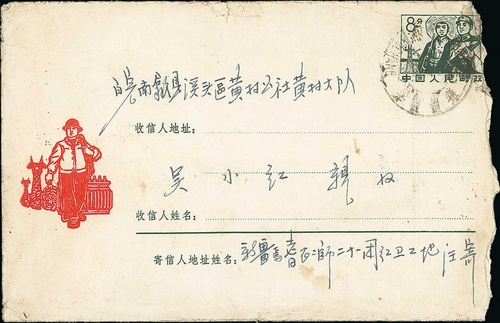 8分
中国人民邮政
皖南黟县溪头區黄村公社黄村大队
收信人地址:
吴小红 親收
收信人姓名:
寄信人地址姓名: 新疆 二师二十一团红卫工地 汪寄